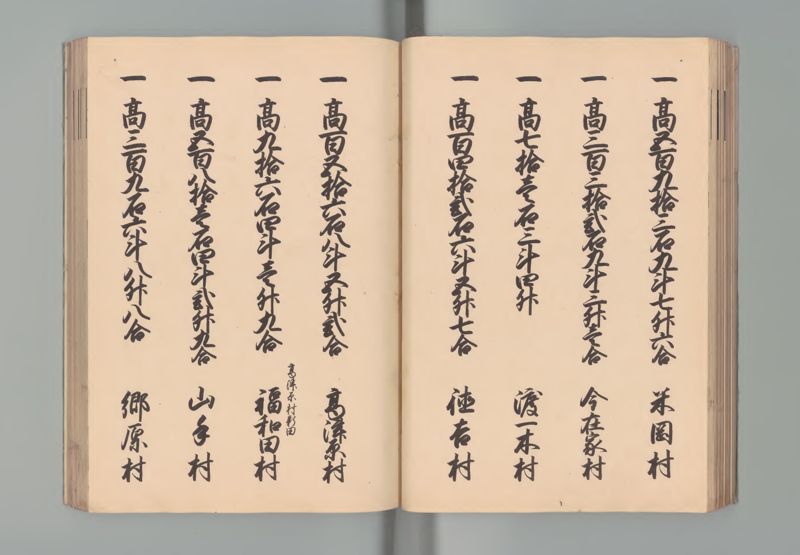 一 高五百九拾三石九斗七升六合 米岡村
一 高三百三拾弐石九斗三升壱合 今在家村
一 高七拾壱石三斗四升 渡一木村
一 高百四拾弐石六斗五升七合 徳吉村
一 高百五拾六石八斗五升弐合 高津原村
高津原村新田
一 高九拾六石四斗壱升九合 福和田村
一 高五百八拾壱石四斗弐升九合 山手村
一 高三百九石六斗八升八合 郷原村